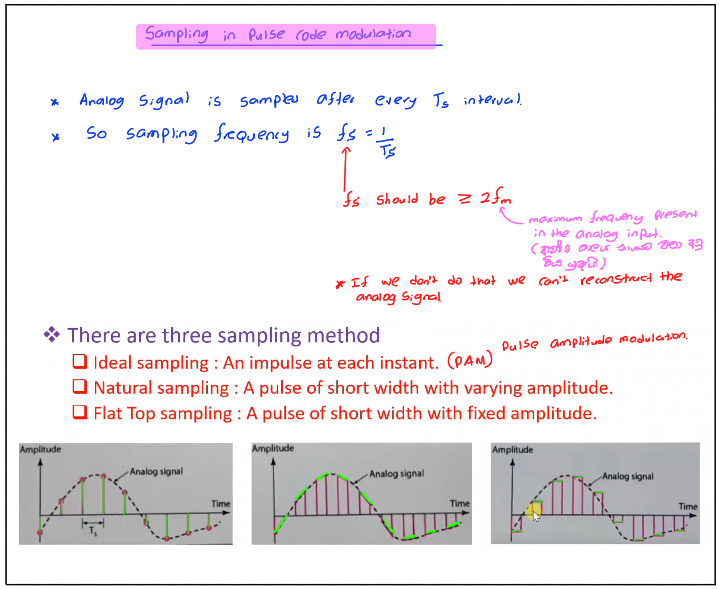 Sampling in Pulse code modulation
* Analog Signal is sampled after every Ts interval.
* So sampling frequency is fs = 1/Ts
fs should be ≥ 2fm
maximum frequency present
in the analog input.
* If we don't do that we can't reconstruct the
analog signal
❖ There are three sampling method
❑ Ideal sampling : An impulse at each instant. (PAM) Pulse amplitude modulation.
❑ Natural sampling : A pulse of short width with varying amplitude.
❑ Flat Top sampling : A pulse of short width with fixed amplitude.
Amplitude
Analog signal
Time
Ts
Amplitude
Analog signal
Time
Amplitude
Analog signal
Time